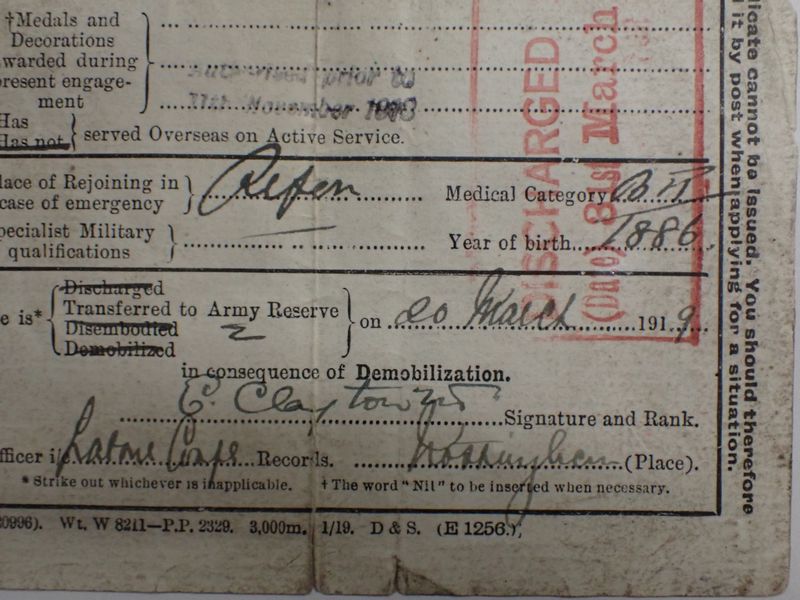 †Medals and
Decorations
warded during
present engage-
ment
11th November 1918
Has
Has not } served Overseas on Active Service.
lace of Rejoining in
case of emergency } Ripon
Medical Category B II
pecialist Military
qualifications }
Year of birth 1886
e is* { Discharged
Transferred to Army Reserve
Disembodied
Demobilized } on 20 March 1919
Z
in consequence of Demobilization.
E. Clayton Signature and Rank.
fficer i/c Labour Corps Records. Nottingham (Place).
* Strike out whichever is inapplicable. † The word "Nil" to be inserted when necessary.
0996). Wt. W 8211—P.P. 2329. 3,000m. 1/19. D & S. (E 1256.)
DISCHARGED
(Date) 31st March
licate cannot be issued. You should therefore
it by post when applying for a situation.